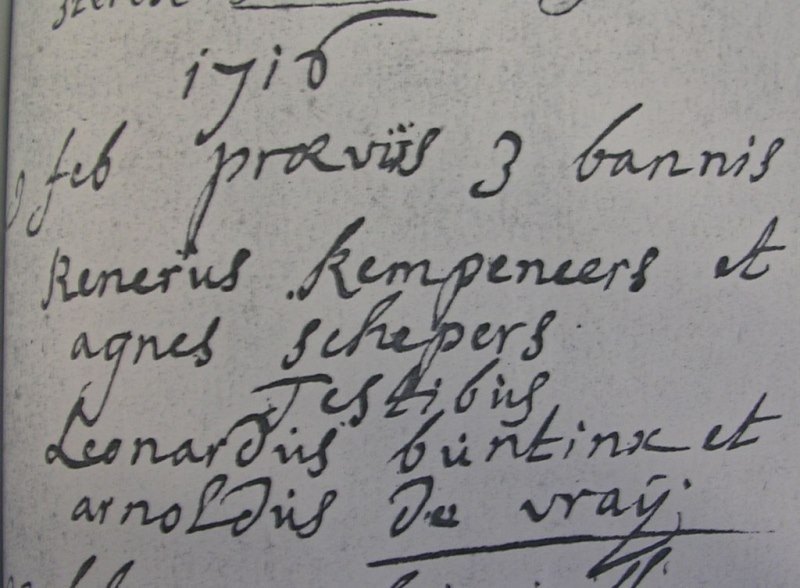 1716
feb præviis 3 bannis
Renerus Kempeneers et
agnes schepers
Testibus
Leonardus buntinx et
arnoldus de vraÿ